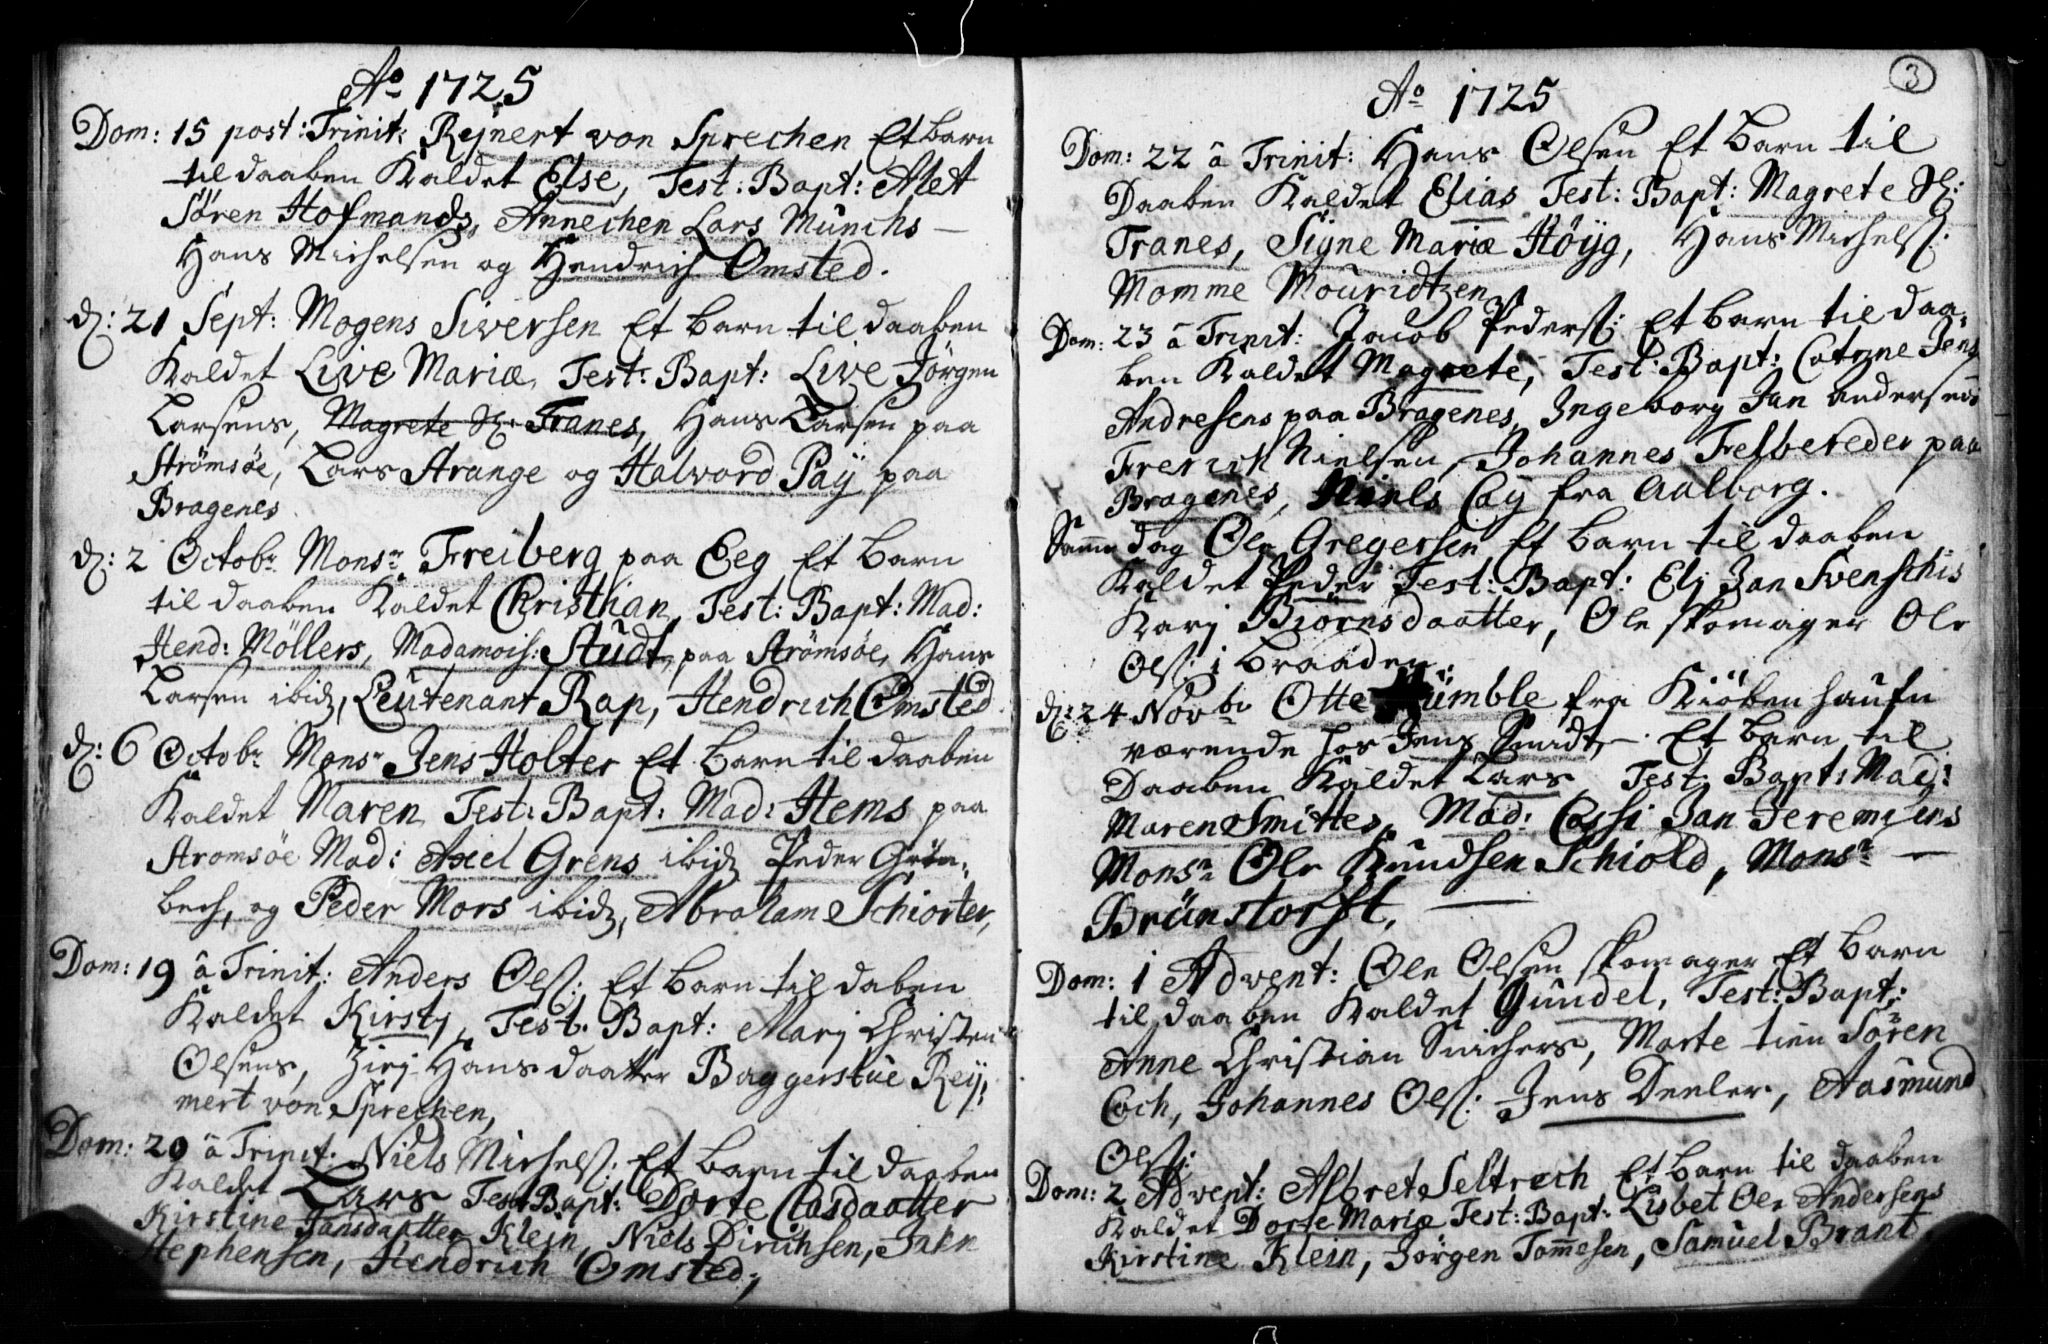 Ao 1725
Dom: 15 post: Trinit: Rejnert von Sprechen Et barn
til daaben Kaldet Else, Test: Bapt: Alet
Sören Hofmands, Annechen Lars Munchs —
Hans Michelsen og Hendrich Omsted.
d: 21 Sept: Mogens Siversen Et barn til daaben
Kaldet Live Mariæ, Test: Bapt: Live Jörgen
Larsens, Magrete Sl: Tranes, Hans Larsen paa
Strömsöe, Lars Strange og Halvord Paÿ paa
Bragenes
d: 2 Octobr Monsr Freiberg paa Eeg Et barn
til daaben Kaldet Christhian, Test: Bapt: Mad:
Hend: Möllers, Madamois: Studt, paa Strömsöe, Hans
Larsen ibid, Leutenant Rap, Hendrich Omsted.
d: 6 Octobr Monsr Jens Holter Et barn til daaben
Kaldet Maren, Test: Bapt: Mad: Hems paa
Stromsöe Mad: Axel Grens ibid Peder Grön-
bech, og Peder Mors ibid, Abraham Schiorter,
Dom: 19 â Trinit: Anders Ols: Et barn til daben
Kaldet Kirstj, Test: Bapt: Marj Christen
Olsens, Zirj Hansdaatter Baggerstue Reij-
nert von Sprechen,
Dom: 20 â Trinit: Niels Michels: Et barn til daaben
Kaldet Lars Test Bapt: Dorte Clasdaatter
Kirstine Jansdaatter Klein, Niels Dirichsen, Jaen
Stephensen, Hendrich Omsted,
3
Ao 1725
Dom: 22 â Trinit: Hans Olsen Et barn til
Daaben Kaldet Elias Test: Bapt: Magrete Sl:
Tranes, Signe Mariæ Höijg, Hans Michels:
Momme Mouridtzen
Dom: 23 â Trinit: Jacob Peders: Et barn til daa-
ben Kaldet Magrete, Test: Bapt: Catrine Jens
Andresens paa Bragenes, Ingeborg Jan andersens
Frerich Nielsen, Johannes Felbereder paa
Bragenes, Niels Caÿ fra Aalborg.
Samme dag Ole Gregersen Et barn til daaben
Kaldet Peder Test: Bapt: Elj Jan Svenschis
Karj Biörnsdaatter, Ole skomager Ole
Ols: i braaden.
d: 24 Novbr Otte Humble fra Kiöbenhaufn
værende hos Jens Smidt —. Et barn til
Daaben Kaldet Lars Test Bapt: Mad:
Maren Smittes, Mad: Cassi Jan Jeremiens
Monsr Ole Knudsen Schiold, Monsr —
Brünstorfft,
Dom: 1 Advent: Ole Olsen skomager Et barn
til daaben Kaldet Gundel, Test: Bapt:
Anne Christian Snichers, Marte tien Sören
Coch, Johannes Ols: Jens Deeler, Aasmund
Ols:
Dom: 2 Advent: Albret Seltrech Et barn til daaben
Kaldet Dorte Mariæ Test: Bapt: Lisbet Ole Andersens
Kirstine Klein, Jörgen Tommesen, Samuel Brant,